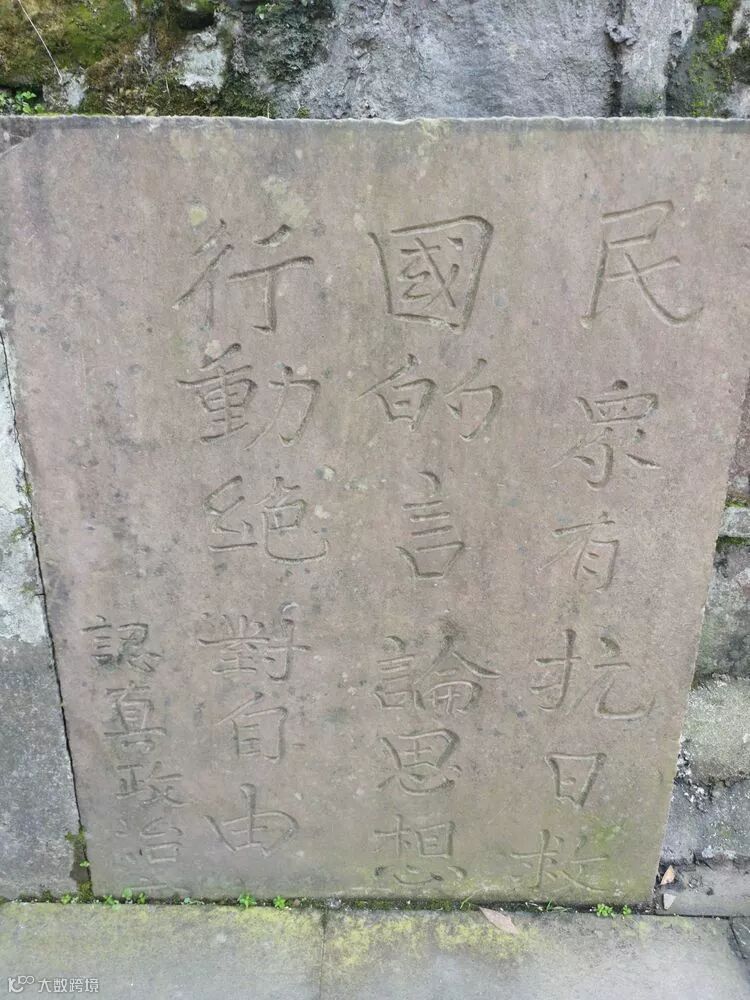 民眾有抗日救
國的言論思想
行動絕對自由
認真政治
大数跨境